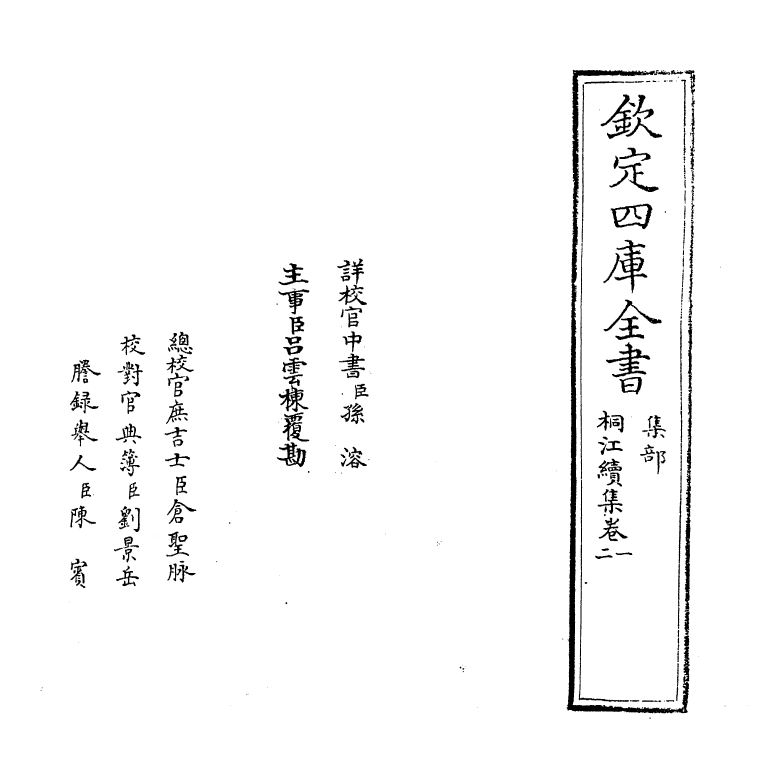 欽定四庫全書
集部
桐江續集卷一二
詳校官中書臣孫溶
主事臣呂雲棟覆勘
總校官庶吉士臣倉聖脉
校對官典簿臣劉景岳
謄録舉人臣陳賓